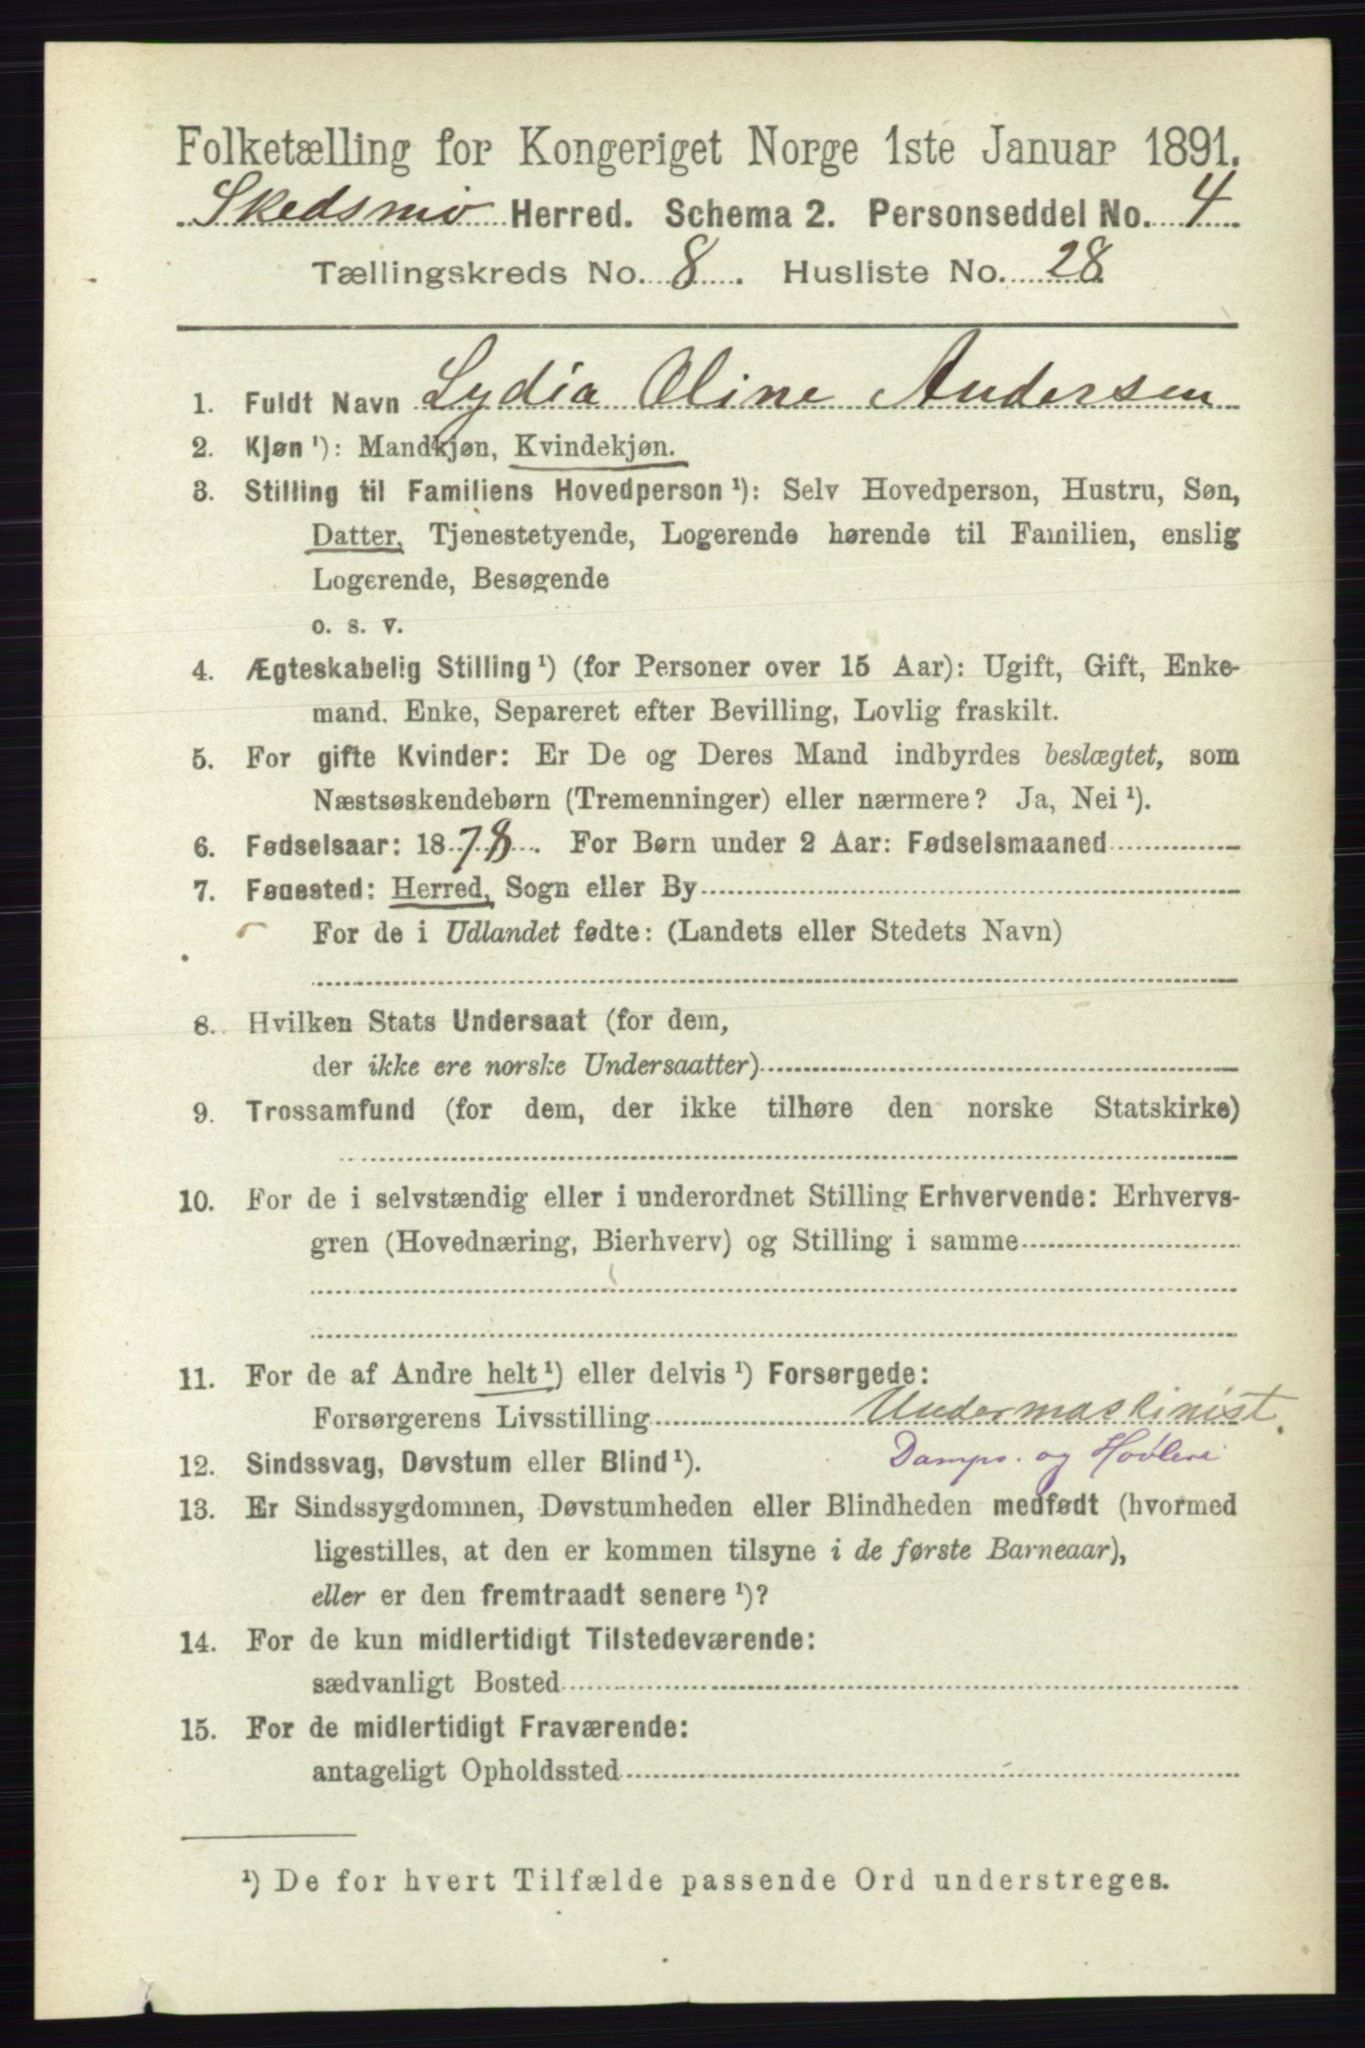 Folketælling for Kongeriget Norge 1ste Januar 1891.
Skedsmo Herred. Schema 2. Personseddel No. 4
Tællingskreds No. 8. Husliste No. 28
1. Fuldt Navn Lydia Oline Andersen
2. Kjøn ¹): Mandkjøn, Kvindekjøn.
3. Stilling til Familiens Hovedperson ¹): Selv Hovedperson, Hustru, Søn,
Datter, Tjenestetyende, Logerende hørende til Familien, enslig
Logerende, Besøgende
o. s. v.
4. Ægteskabelig Stilling ¹) (for Personer over 15 Aar): Ugift, Gift, Enke-
mand, Enke, Separeret efter Bevilling, Lovlig fraskilt.
5. For gifte Kvinder: Er De og Deres Mand indbyrdes beslægtet, som
Næstsøskendebørn (Tremenninger) eller nærmere? Ja, Nei ¹).
6. Fødselsaar: 1878. For Børn under 2 Aar: Fødselsmaaned
7. Fødested: Herred, Sogn eller By
For de i Udlandet fødte: (Landets eller Stedets Navn)
8. Hvilken Stats Undersaat (for dem,
der ikke ere norske Undersaatter)
9. Trossamfund (for dem, der ikke tilhøre den norske Statskirke)
10. For de i selvstændig eller i underordnet Stilling Erhvervende: Erhvervs-
gren (Hovednæring, Bierhverv) og Stilling i samme
11. For de af Andre helt ¹) eller delvis ¹) Forsørgede:
Forsørgerens Livsstilling Undermaskinist.
Damps. og Høvleri
12. Sindssvag, Døvstum eller Blind ¹).
13. Er Sindssygdommen, Døvstumheden eller Blindheden medfødt (hvormed
ligestilles, at den er kommen tilsyne i de første Barneaar),
eller er den fremtraadt senere ¹)?
14. For de kun midlertidigt Tilstedeværende:
sædvanligt Bosted
15. For de midlertidigt Fraværende:
antageligt Opholdssted
¹) De for hvert Tilfælde passende Ord understreges.